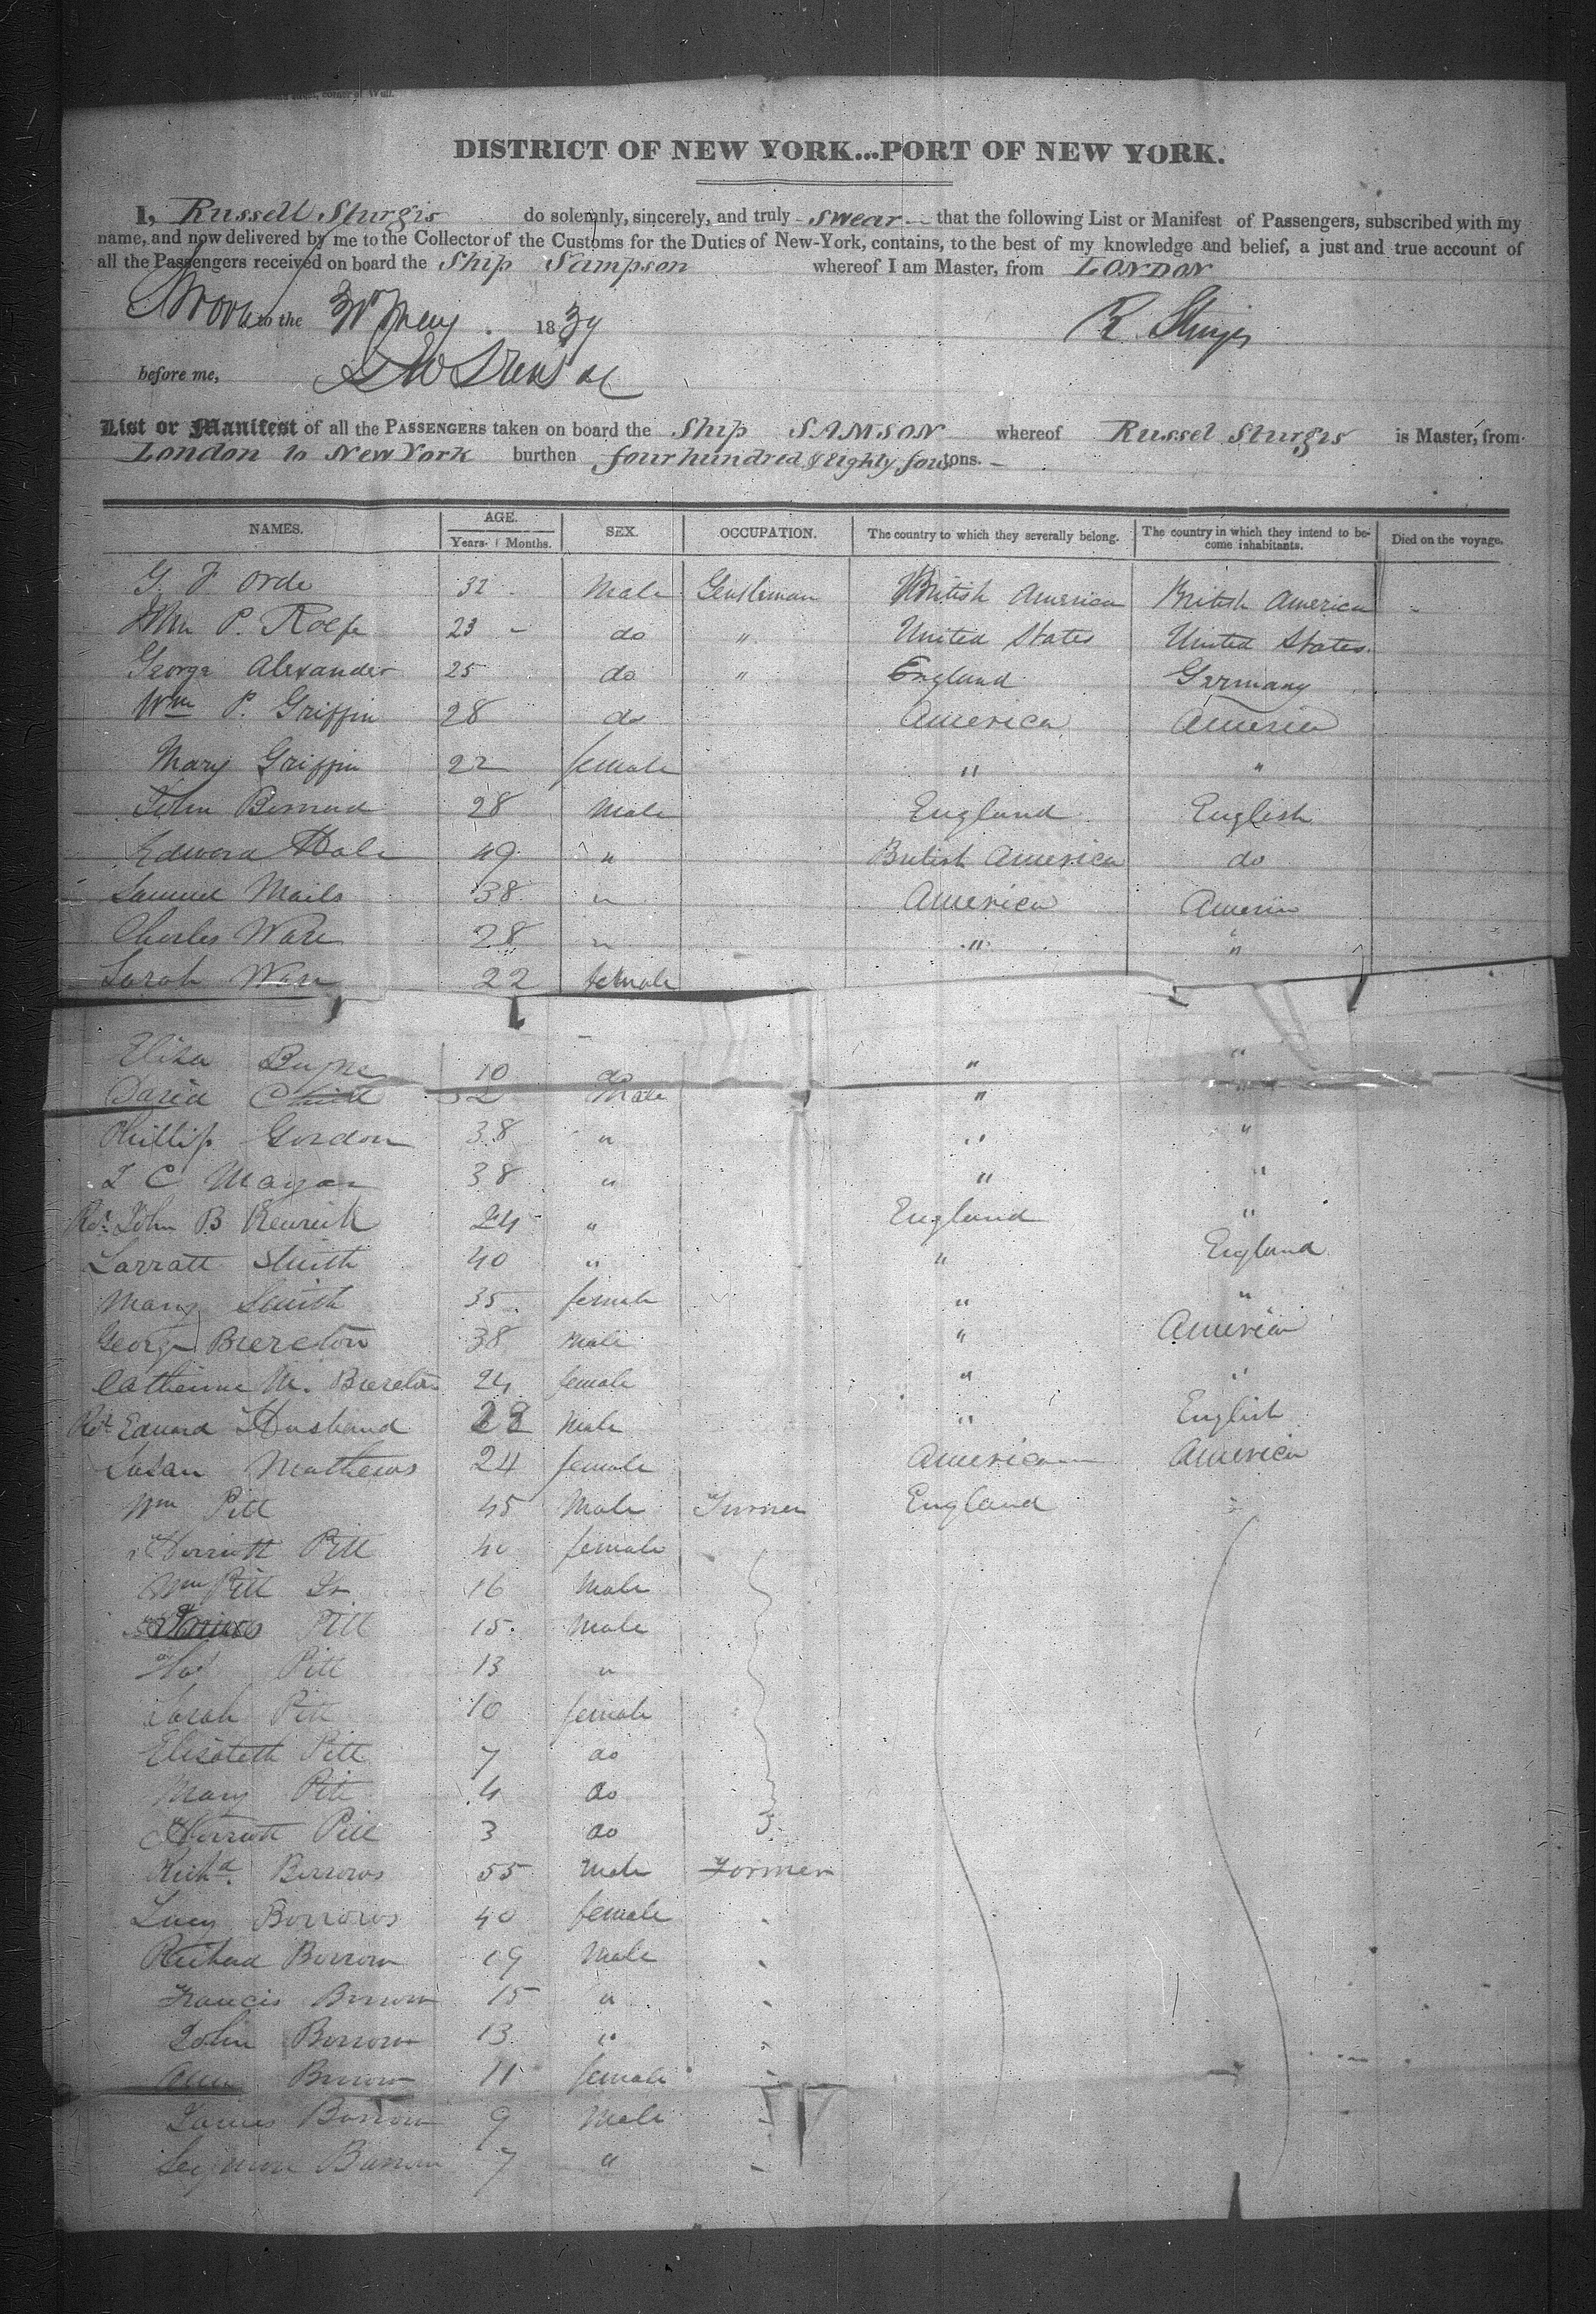 DISTRICT OF NEW YORK...PORT OF NEW YORK.
I, Russell Sturgis do solemnly, sincerely, and truly swear that the following List or Manifest of Passengers, subscribed with my
name, and now delivered by me to the Collector of the Customs for the Duties of New-York, contains, to the best of my knowledge and belief, a just and true account of
all the Passengers received on board the Ship Sampson whereof I am Master, from LONDON
Sworn to the May 1839 R Sturgis
before me,
List or Manifest of all the PASSENGERS taken on board the Ship SAMSON whereof Russel Sturgis is Master, from
London to New York burthen four hundred & eighty four tons.
NAMES. AGE. Years. Months. SEX. OCCUPATION. The country to which they severally belong. The country in which they intend to become inhabitants. Died on the voyage.
G. F Orde 32 Male Gentleman British America British America
Wm P. Rolfe 23 do " United States United States
George Alexander 25 do " England Germany
Wm P. Griffin 28 do America America
Mary Griffin 22 female " "
John 28 Male England English
Edward Hale 49 " British America do
Samuel Mails 38 " America America
Charles Ware 28 " " "
Sarah Ware 22 female
Eliza 10 do " "
David Male " "
Phillip Gordon 38 " " "
38 " " "
Revd John B 24 " England "
Larratt Smith 40 " " England
Mary Smith 35 female " "
George Brereton 38 Male " America
Catherine M. Brereton 24 female " "
Revd Edward Husband male " English
Susan Mathews 24 female America America
Wm Pill 45 Male England
Harriett Pill 40 female
Wm Pill Jr 16 Male
Pill 15 Male
Thos Pill 13 "
Sarah Pill 10 female
Elisabeth Pill 7 do
Mary Pill 4 do
Harriett Pill 3 do
Richd. Borrows 55 Male Farmer
Lucy Borrows 40 female
Richard Borrow 19 Male
Francis Borrow 15 "
John Borrow 13 "
Ann Borrow 11 female
James Borrow 9 Male
Seymore Borrow 7 "